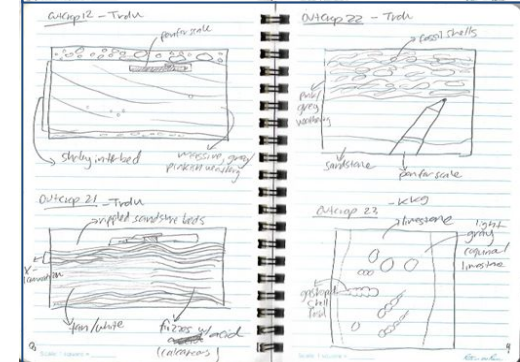 Outcrop 12 - Trdn
pen for scale
shaley interbed
massive, gray/
pinkish weathering
Outcrop 21 - Trdn
rippled sandstone beds
X-
lamination
tan/white
fizzes w/ acid
(calcareous)
8
Outcrop 22 - Trdn
fossil shells
pink/
grey
weathering
sandstone
pen for scale
Outcrop 23 - Kkg
limestone
light
gray
limestone
gastropod
shell
fossil
9